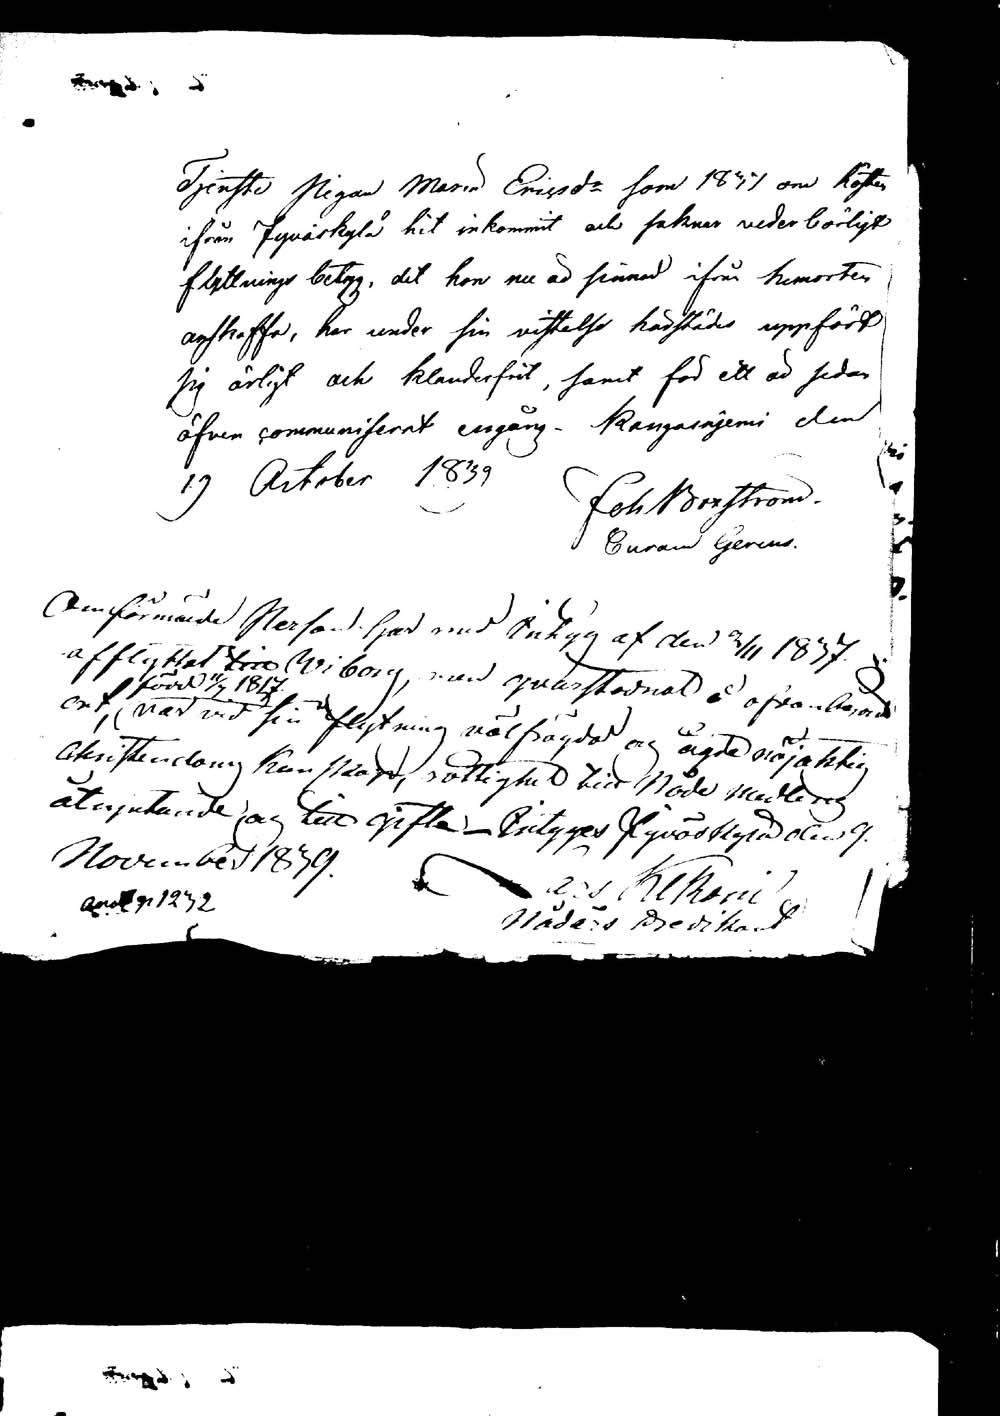 Tjenste Pigan Maria Ericsdr som 1837 om hösten
ifrån Jyväskylä hit inkommit och saknar vederbörligt
flyttnings betyg, det hon nu äd sinnad ifrån hemorten
anskaffa, har under sin vistelse härstädes uppfört
sig ärligt och klanderfritt, samt för ett år sedan
äfven communiserat engång - Kangasniemi den
19 October 1839
Joh Boxström.
Curam Gerens.
Omförmälde Person har med Intyg af den 2/11 1837
afflyttat till Wiborg, men qvarstadnat å ofvanberörde
född 11/7 1817.
ort, var vid sin flytning välfrägdad og ägde nöjaktig
christendoms kunskap, rättighet till Nåde medlens
åtnjutande og till gifte - Intygges Jyväskylä den 9.
November 1839.
Nådårs Predikant